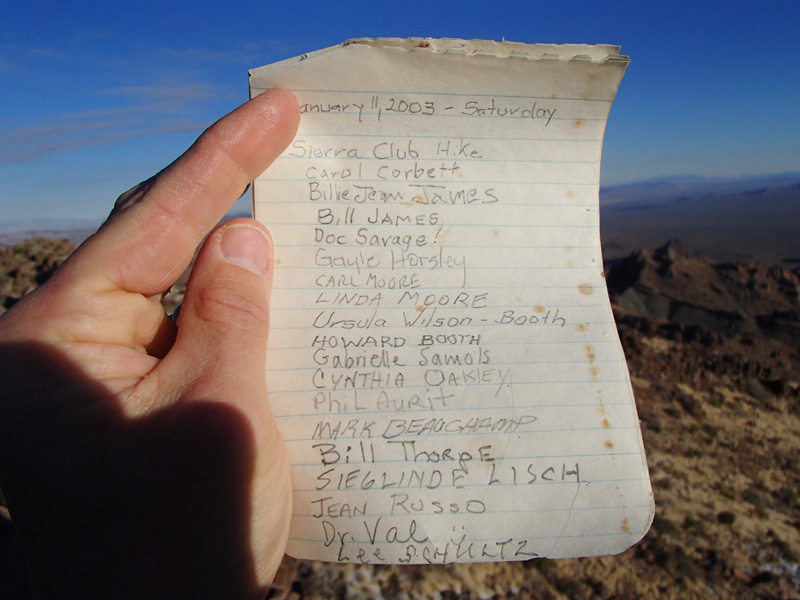 January 11, 2003 - Saturday
Sierra Club Hike
Carol Corbett
Billie Jean James
Bill James
Doc Savage!
Gayle Horsley
CARL MOORE
LINDA MOORE
Ursula Wilson - Booth
HOWARD BOOTH
Gabrielle Samols
CYNTHIA OAKLEY
Phil Aurit
MARK BEAUCHAMP
Bill Thorpe
SIEGLINDE LISCH
JEAN RUSSO
Dr. Val
Lee SCHULTZ